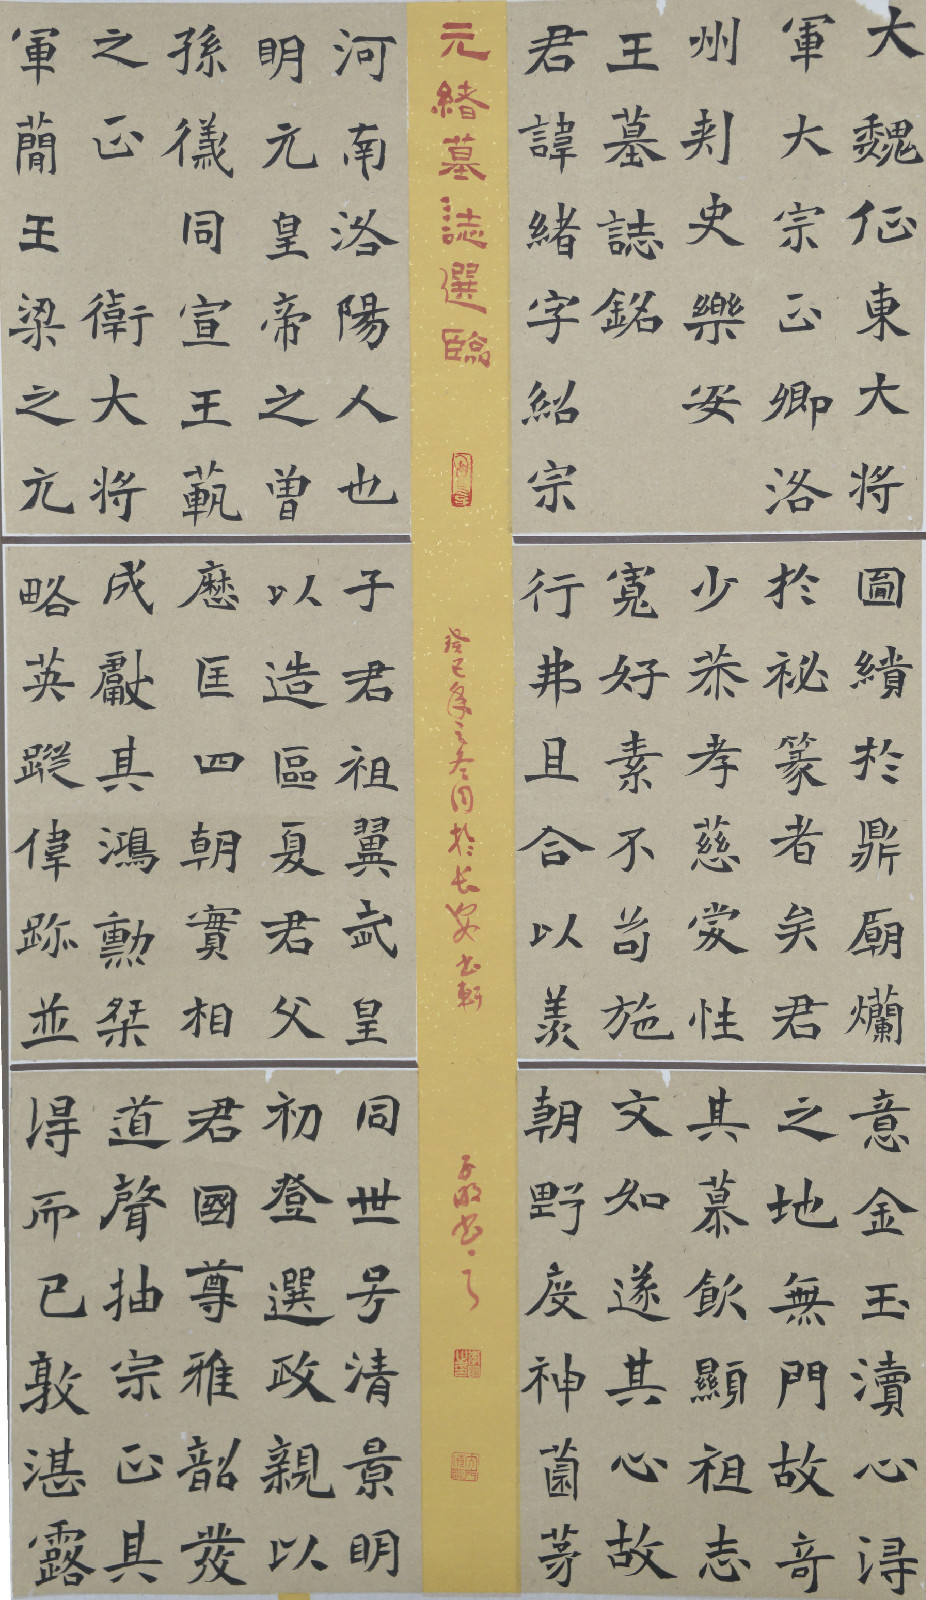 大魏征東大将
軍大宗正卿洛
州刾史樂安
王墓誌銘
君諱緒字紹宗
河南洛陽人也
明元皇帝之曽
孫儀同宣王範
之正 衛大将
軍簡王梁之元
子君祖翼武皇
以造區夏君父
歷匡四朝實相
成獻其鴻勳桀
略英蹤偉跡並
圖繢於鼎廟爛
於祕篆者矣君
少恭孝慈愛性
寬好素不苟施
行弗且合以羨
意金玉瀆心得
之地無門故奇
其慕飲顯祖志
文如遂其心故
朝野度神菌茅
同世号清景明
初登選政親以
君國尊雅韶發
道聲抽宗正其
得而已敦湛露
元緒墓誌選臨
癸巳年之冬月於长安书軒